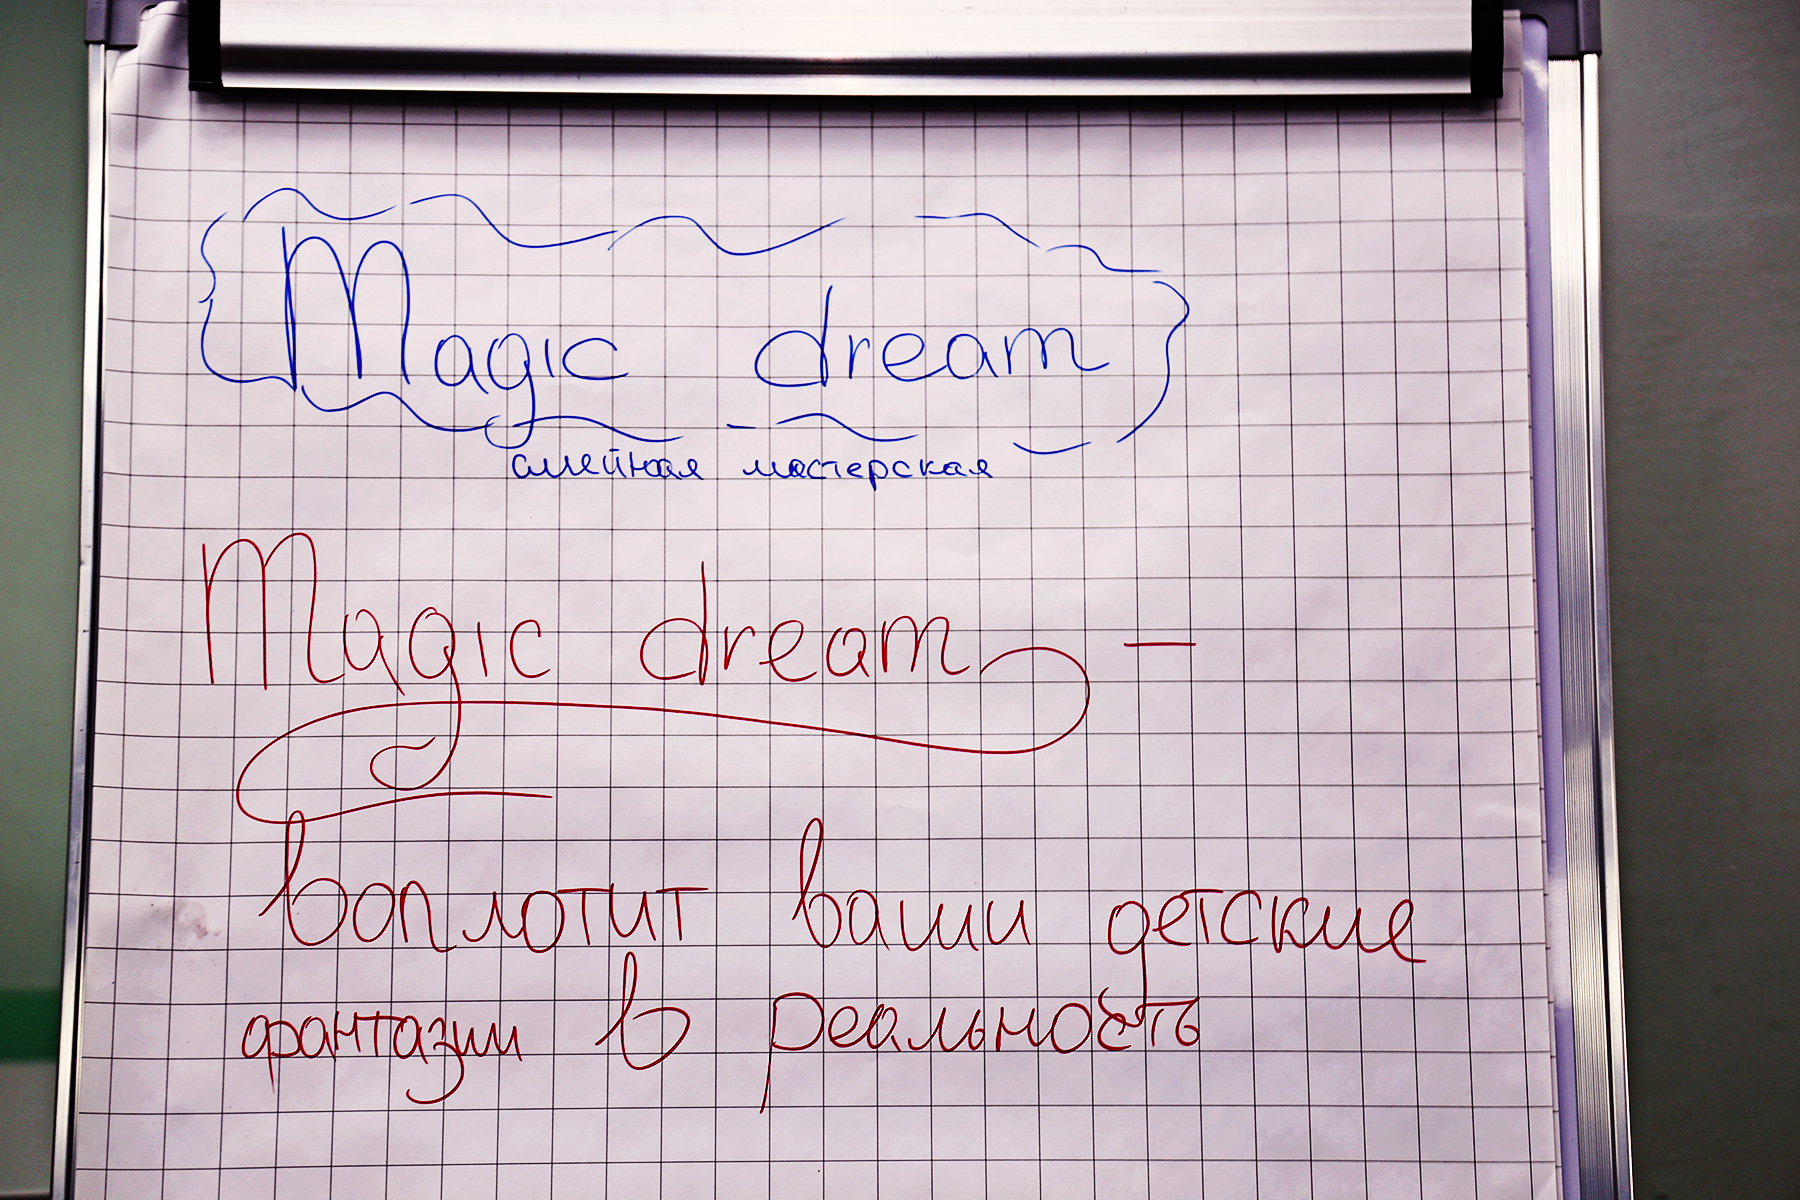 Magic dream
семейная мастерская
Magic dream –
воплотит ваши детские
фантазии в реальность